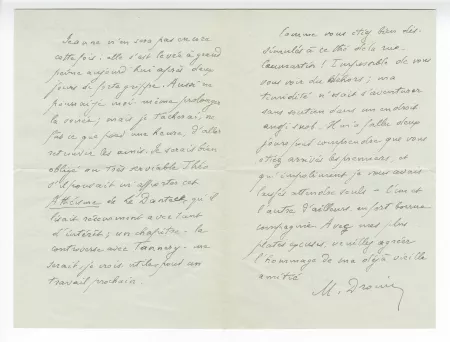 Jeanne n'en sera pas encore
cette fois : elle s'est levée à grand
peine aujourd'hui après deux
jours de forte grippe. Aussi ne
pourrai-je moi-même prolonger
la soirée ; mais je tâcherai, ne
fût-ce que pour une heure, d'aller
retrouver les amis. Je serais bien
obligé au très serviable Théo
s'il pouvait m'apporter cet
Athéisme de Le Dantec, qu'il
lisait récemment avec tant
d'intérêt ; un chapitre - la
controverse avec Tannery - me
serait, je crois, utile pour un
travail prochain.
Comme vous étiez bien dis-
simulés à ce thé de la rue
Caumartin ! Impossible de vous
voir du dehors ; ma
timidité n'osait s'aventurer
sans mutation dans un endroit
aussi snob. Il m'a fallu deux
jours pour comprendre que vous
étiez arrivés les premiers, et
qu'impoliment je vous avais
laissés attendre seuls - l'un et
l'autre d'ailleurs en fort bonne
compagnie. Avec mes plus
plates excuses, veuillez agréer
l'hommage de ma déjà vieille
amitié
M. Drouin